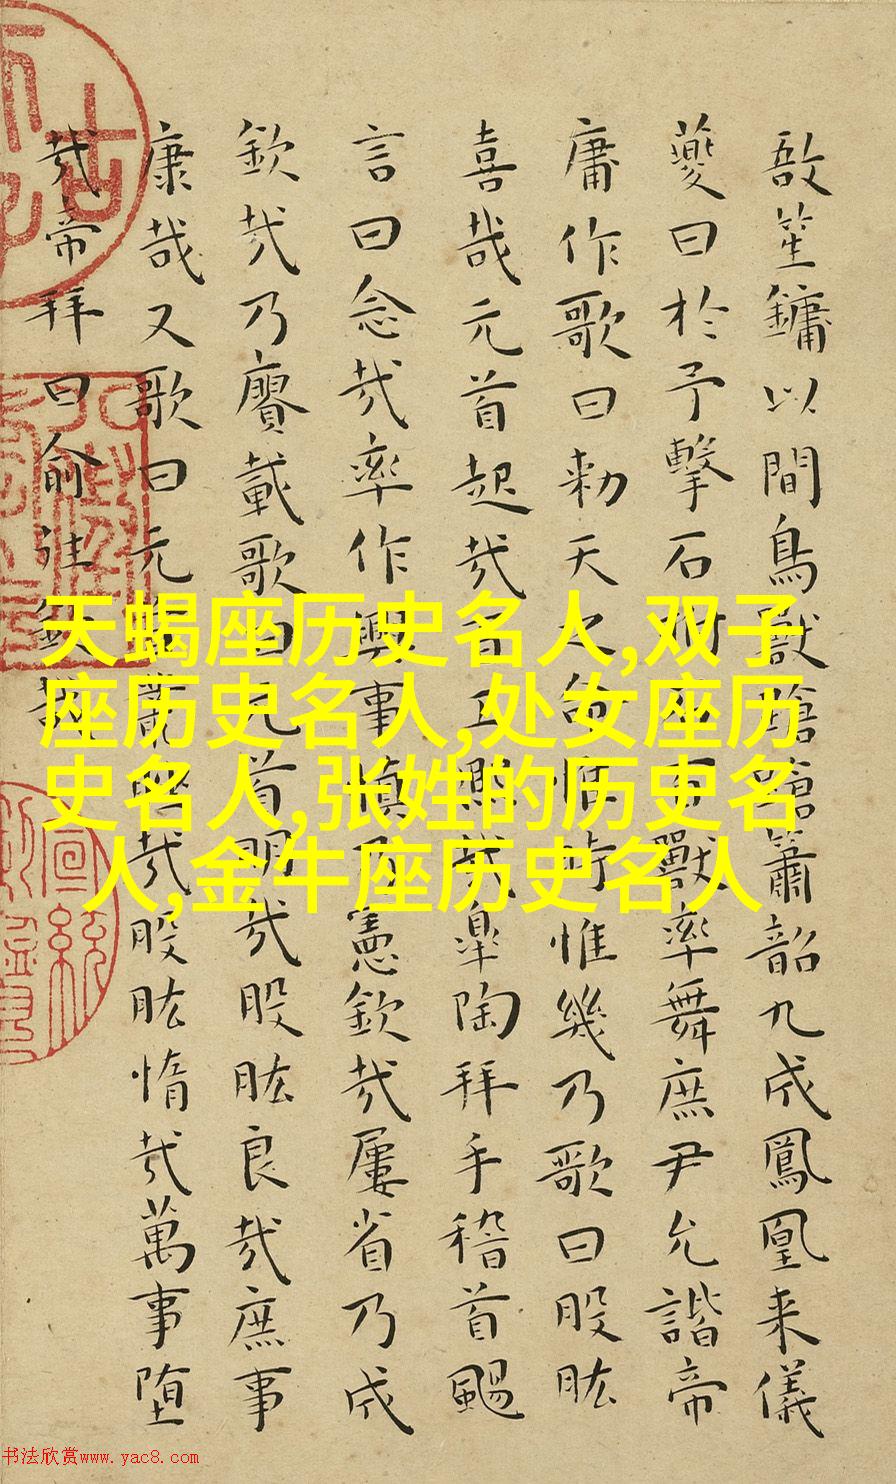 敔笙鏞以間鳥獸蹌蹌簫韶九成鳳凰来儀
夔曰於予擊石拊石百獸率舞庶尹允諧帝
庸作歌曰勑天之命惟時惟幾乃歌曰股肱
喜哉元首起哉百工熙哉皋陶拜手稽首颺
言曰念哉率作興事慎乃憲欽哉屢省乃成
欽哉乃賡載歌曰元首明哉股肱良哉庶事
康哉又歌曰元首叢脞哉股肱惰哉萬事堕
哉帝拜曰俞往欽哉
天蝎座历史名人,双子
座历史名人,处女座历
史名人,张姓的历史名
人,金牛座历史名人
书法欣赏www.yac8.com